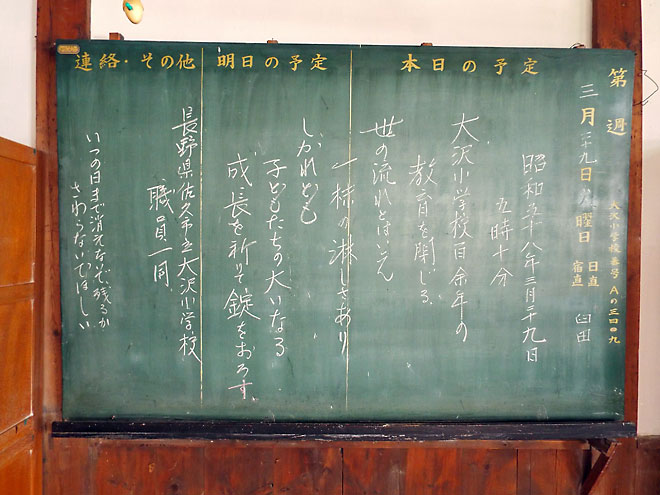 第　週
大沢小学校 番号 Aの三四〇九
三月二十九日 火曜日 日直 宿直 臼田
本日の予定
昭和五十八年三月二十九日
五時十分
大沢小学校百余年の
教育を閉じる
世の流れとはいえ
一抹の淋しさあり
明日の予定
しかれども
子どもたちの大いなる
成長を祈って錠をおろす
連絡・その他
長野県佐久市立大沢小学校
職員一同
いつの日まで消えないで残るか
さわらないでほしい